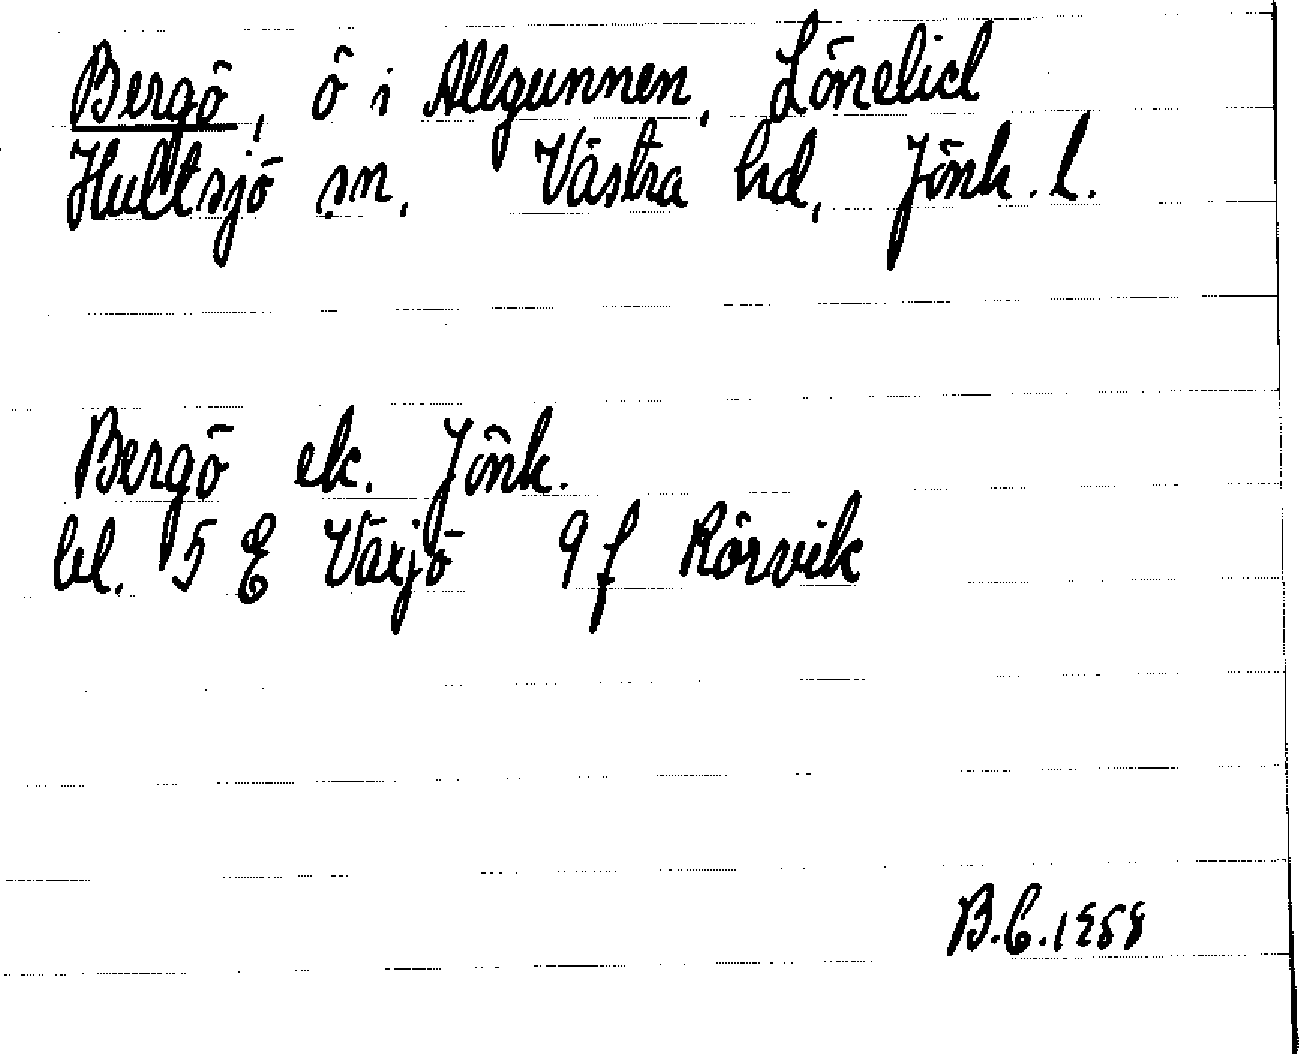 Bergö, ö i Allgunnen, Lönelid
Hultsjö sn. Västra hd, Jönk. l.
Bergö ek. Jönk.
bl. 5 E Växjö 9 f Rörvik
B.C. 1958